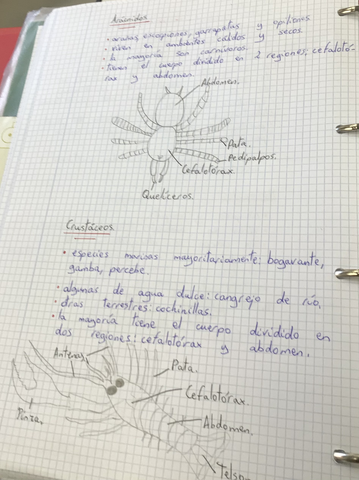 Arácnidos
• arañas, escorpiones, garrapatas y opiliones
• viven en ambientes cálidos y secos.
• la mayoría son carnívoros.
• tienen el cuerpo dividido en 2 regiones; cefalotó-
rax y abdomen.
Abdomen.
Pata.
Pedipalpos.
Cefalotórax.
Quelíceros.
Crustáceos
• especies marinas mayoritariamente: bogavante,
gamba, percebe.
• algunas de agua dulce: cangrejo de río.
• otras terrestres: cochinillas.
• la mayoría tiene el cuerpo dividido en
dos regiones: cefalotórax y abdomen.
Antenas
Pata
Cefalotórax.
Pinza.
Abdomen.
Telson